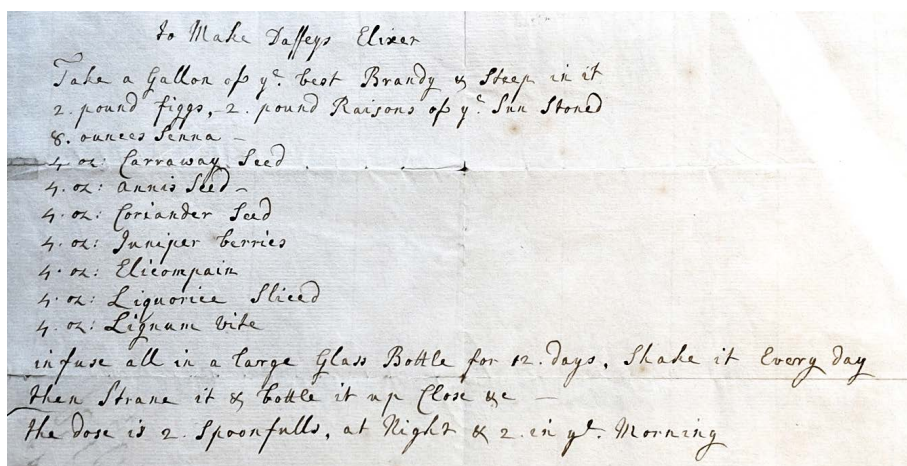 to Make Daffeys Elixer
Take a Gallon of yᵉ. best Brandy & Steep in it
2. pound figgs, 2. pound Raisons of yᵉ. Sun Stoned
8. ounces Senna –
4 oz: Carraway Seed
4. oz: annis Seed –
4. oz: Coriander Seed
4. oz: Juniper berries
4. oz: Elicompain
4. oz: Liquorice Sliced
4. oz: Lignum vite
infuse all in a large Glass Bottle for 12. days, Shake it Every day
then Strane it & bottle it up Close &c —
the dose is 2. Spoonfulls, at Night & 2. in yᵉ. Morning